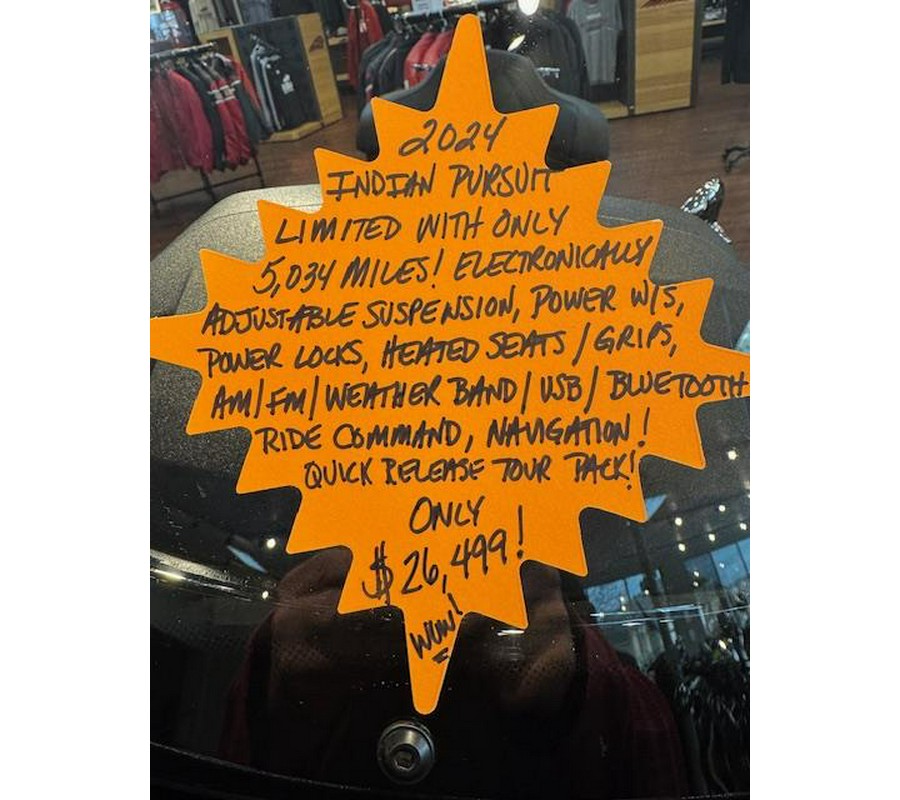 2024
INDIAN PURSUIT
LIMITED WITH ONLY
5,034 MILES! ELECTRONICALLY
ADJUSTABLE SUSPENSION, POWER W/S,
POWER LOCKS, HEATED SEATS / GRIPS,
AM/FM/WEATHER BAND/USB/BLUETOOTH
RIDE COMMAND, NAVIGATION!
QUICK RELEASE TOUR PACK!
ONLY
$26,499!
WOW!